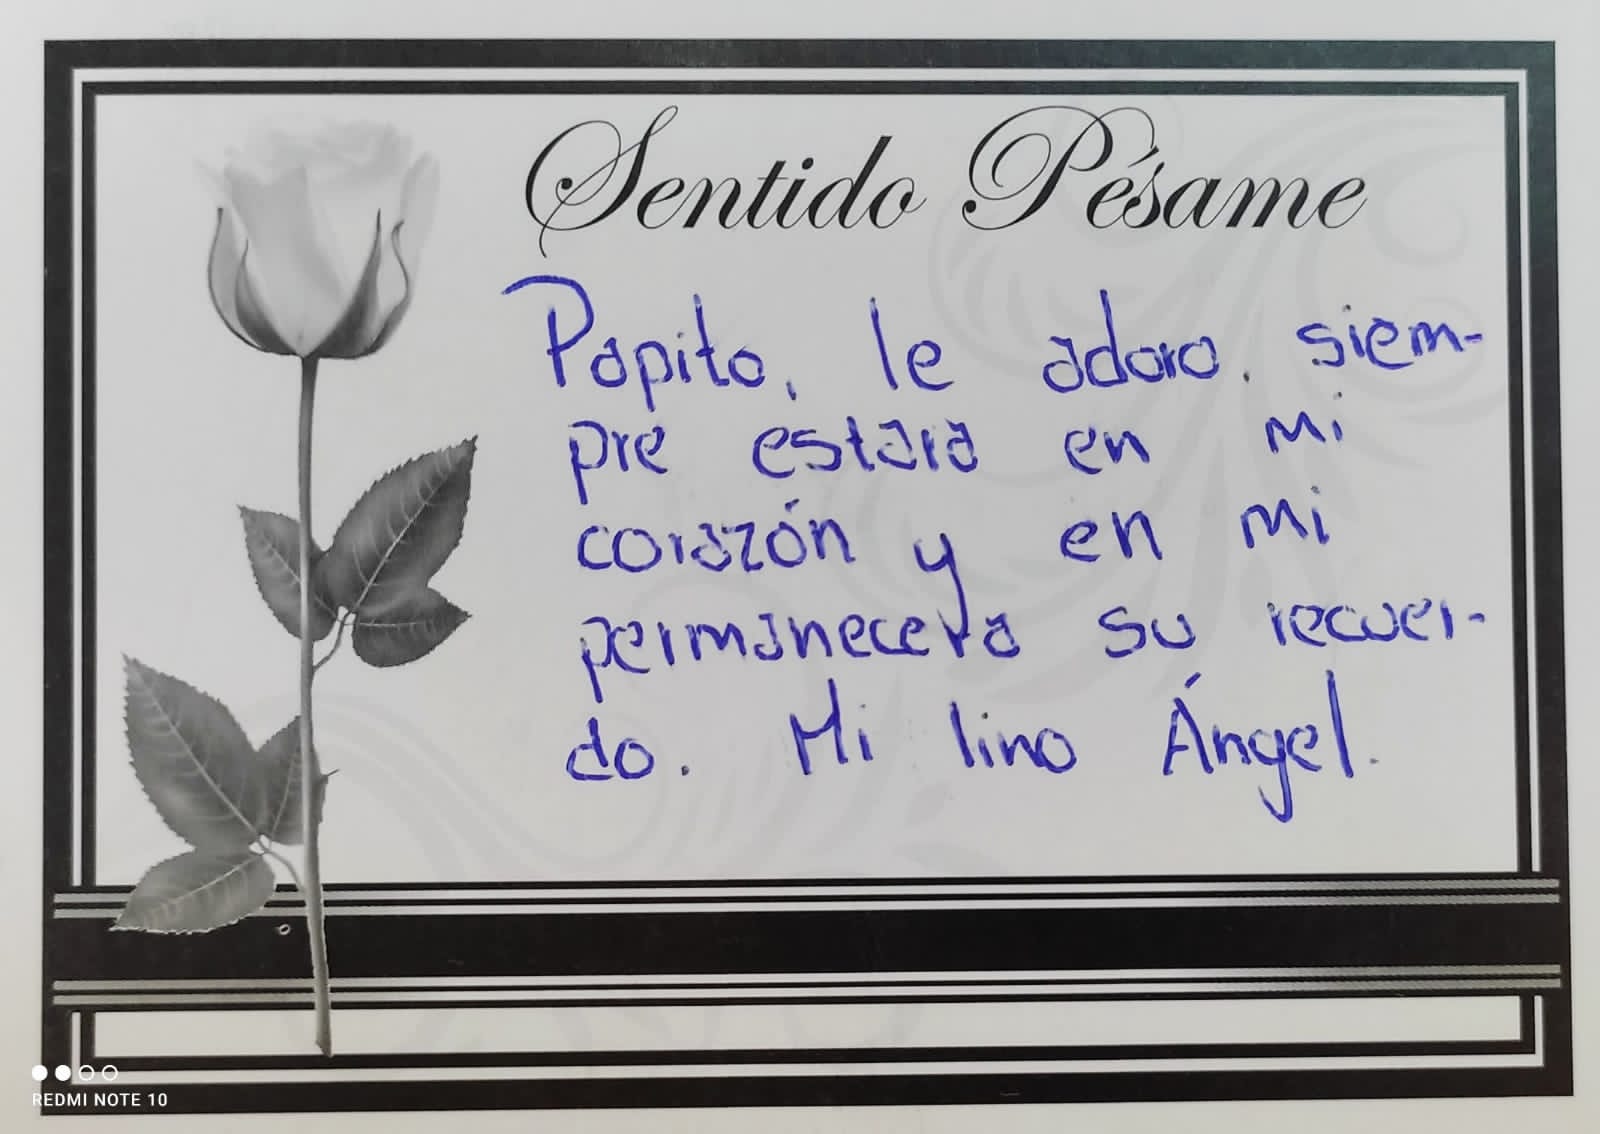 Sentido Pésame
Papito, le adoro, siem-
pre estara en mi
corazón y en mi
permanecera su recuer-
do. Mi lino Ángel.
REDMI NOTE 10